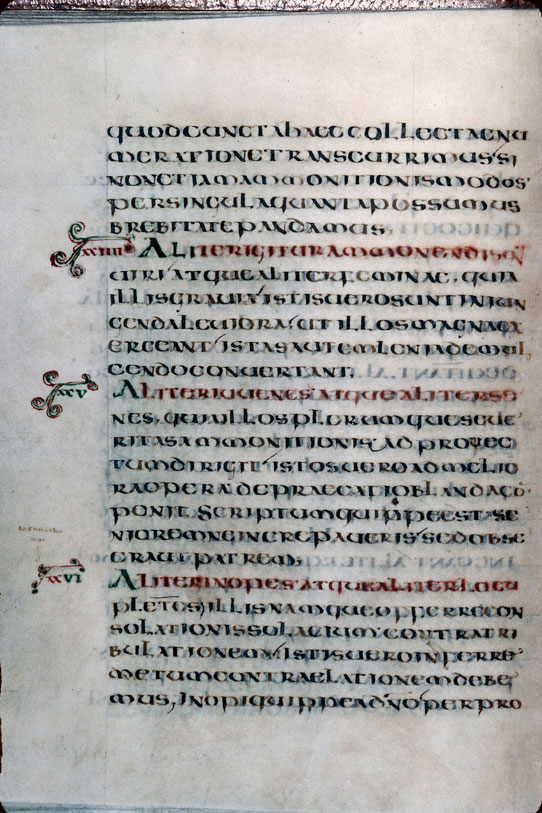 QUOD CUNCTA HAEC COLLECTA ENU
MERATIONE TRANSCURRIMUS SI
NON ETIAM AMMONITIONIS MODOS
PER SINGULA QUANTA POSSUMUS
BREBITATE PANDAMUS
XXIIII ALITER IGITUR AMMONENDI SUNT
UIRI ATQUE ALITER FEMINAE QUIA
ILLIS GRAUIA ISTIS UERO SUNT INIUN
GENDA LEUIORA UT ILLOS MAGNA EX
ERCEANT ISTAS AUTEM LENIA DEMUL
CENDO CONUERTANT
XXV ALITER IUUENES ATQUE ALITER SE
NES QUIA ILLOS PLERUMQUE SEUE
RITAS AMMONITIONIS AD PROFEC
TUM DIRIGIT ISTOS UERO AD MELIO
RA OPERA DEPRAECATIO BLANDA CO
PONIT SCRIPTUM QUIPPE EST SE
NIOREM NE INCREPAUERIS SED OBSE
CRA UT PATREM
XXVI ALITER INOPES ATQUE ALITER LOCU
PLETES ILLIS NAMQUE OFFERRE CON
SOLATIONIS SOLACIUM CONTRA TRI
BULATIONEM ISTIS UERO INFERRE
METUM CONTRA ELATIONEM DEBE
MUS INOPI QUIPPE A DNO PER PRO